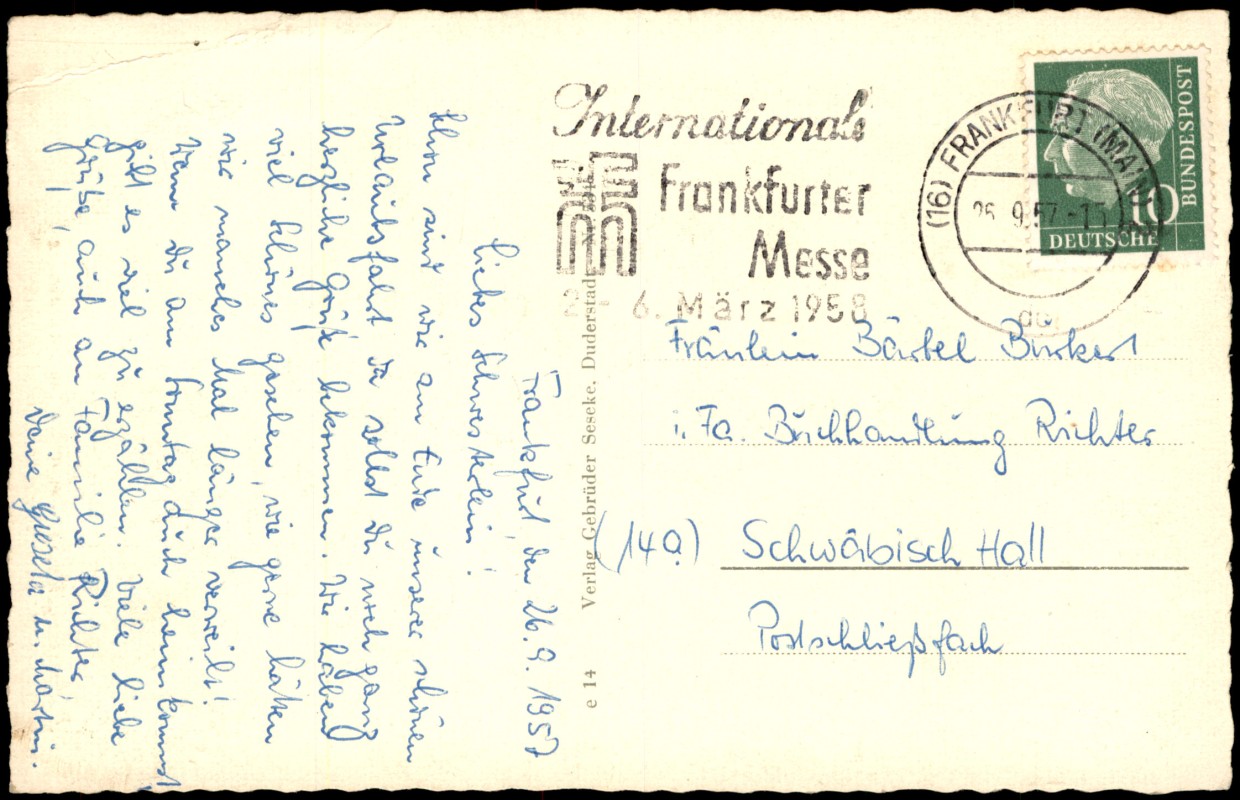 Frankfurt den 26.9.1957
Liebes Schwesterlein!
Schon sind wir am Ende unserer schönen
Urlaubsfahrt da sollst Du noch ganz
herzliche Grüße bekommen. Wir haben
viel schönes gesehen, wie gerne hätten
wir manches Mal länger verweilt!
Wenn Du am Sonntag durch heim kommst
gibt es viel zu erzählen. Viele liebe
Grüße, auch an Familie Richter,
Deine Gisela u. Martin.
e 14 Verlag Gebrüder Seseke, Duderstadt
Internationale
Frankfurter
Messe
2. - 6. März 1958
(16) FRANKFURT (MAIN)
26.9.57.-15
10
DEUTSCHE
BUNDESPOST
Fräulein Bärbel Burkert
i. Fa. Buchhandlung Richter
(14a) Schwäbisch Hall
Postschließfach